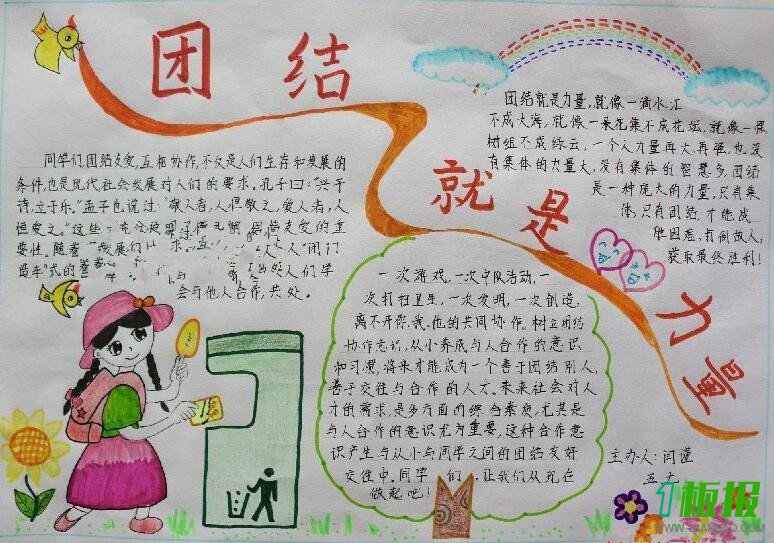 团结
就是
力量
同学们团结友爱,互相协作,不仅是人们生存和发展的
条件,也是现代社会发展对人们的要求。孔子曰:“兴于
诗,立于乐。”孟子也说过:“敬人者,人恒敬之,爱人者,人
恒爱之。”这些
要性。随着
会与他人合作,共处。
团结就是力量,就像一滴水汇
不成大海,就像一朵花集不成花坛,就像一棵
树组不成绿云,一个人力量再大,再强,也没
有集体的力量大,没有集体的智慧多,团结
是一种庞大的力量,只有集
体,只有团结,才能战
胜困难,打倒敌人,
获取最终胜利!
一次游戏,一次中队活动,一
次打扫卫生,一次发明,一次创造,
离不开你.我.他的共同协作。树立团结
协作意识,从小养成与人合作的意识
和习惯,将来才能成为一个善于团结别人,
善于交往与合作的人才。未来社会对人
才的需求,是多方面的综合素质,尤其是
与人合作的意识尤为重要,这种合作意
识产生与从小与同学之间的团结友好
交往中。同学们,让我们从现在
做起吧!
主办人:闫谨
五
板报